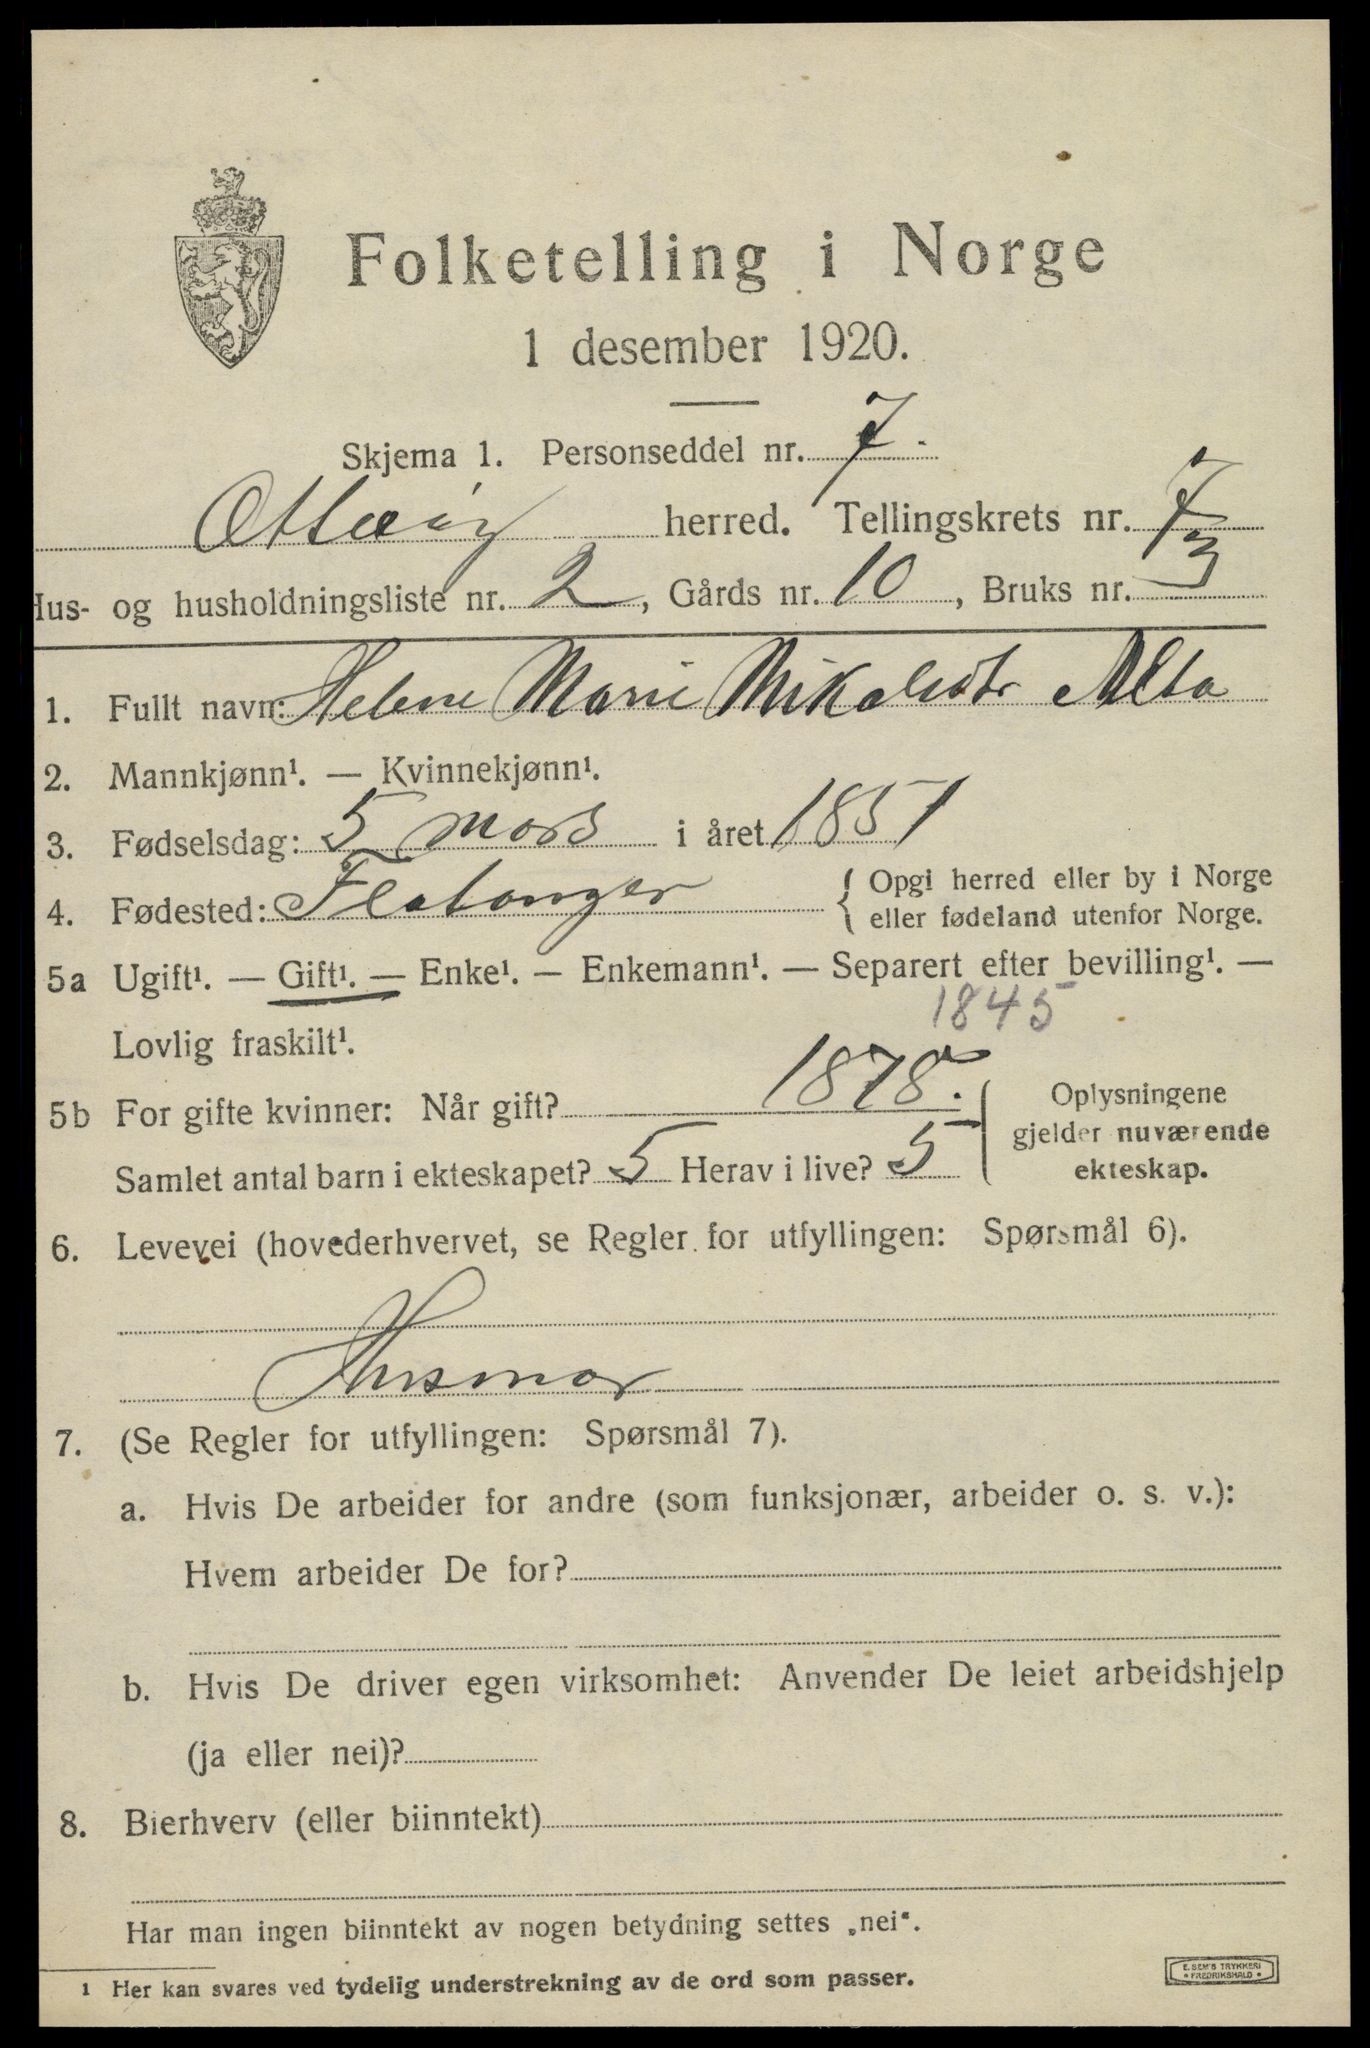 Folketelling i Norge
1 desember 1920.
Skjema 1. Personseddel nr. 7.
Otterøy herred. Tellingskrets nr. 7
Hus- og husholdningsliste nr. 2, Gårds nr. 10, Bruks nr. 3
1. Fullt navn: Helene Marie Mikalsdtr Alta
2. Mannkjønn¹. — Kvinnekjønn¹.
3. Fødselsdag: 5 mars i året 1851
4. Fødested: Flatanger { Opgi herred eller by i Norge
eller fødeland utenfor Norge.
5a Ugift¹. — Gift¹. — Enke¹. — Enkemann¹. — Separert efter bevilling¹. —
1845
Lovlig fraskilt¹.
5b For gifte kvinner: Når gift? 1878. Oplysningene
gjelder nuværende
Samlet antal barn i ekteskapet? 5 Herav i live? 5 ekteskap.
6. Levevei (hovederhvervet, se Regler for utfyllingen: Spørsmål 6).
Husmor
7. (Se Regler for utfyllingen: Spørsmål 7).
a. Hvis De arbeider for andre (som funksjonær, arbeider o. s. v.):
Hvem arbeider De for?
b. Hvis De driver egen virksomhet: Anvender De leiet arbeidshjelp
(ja eller nei)?
8. Bierhverv (eller biinntekt)
Har man ingen biinntekt av nogen betydning settes „nei“.
1 Her kan svares ved tydelig understrekning av de ord som passer.
E. SEM'S TRYKKERI
• FREDRIKSHALD •